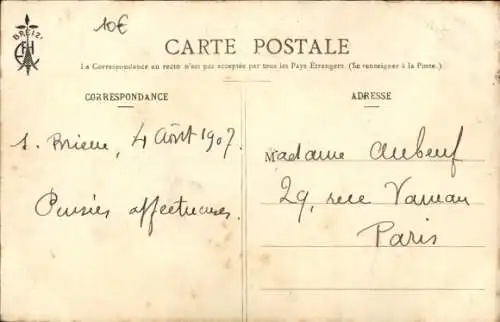 10€
BREIZ
CARTE POSTALE
La Correspondance au recto n'est pas acceptée par tous les Pays Etrangers. (Se renseigner à la Poste.)
CORRESPONDANCE
ADRESSE
S. Brieuc, 4 Août 1907.
Pensées affectueuses.
Madame Aubeuf
29, rue Vaneau
Paris